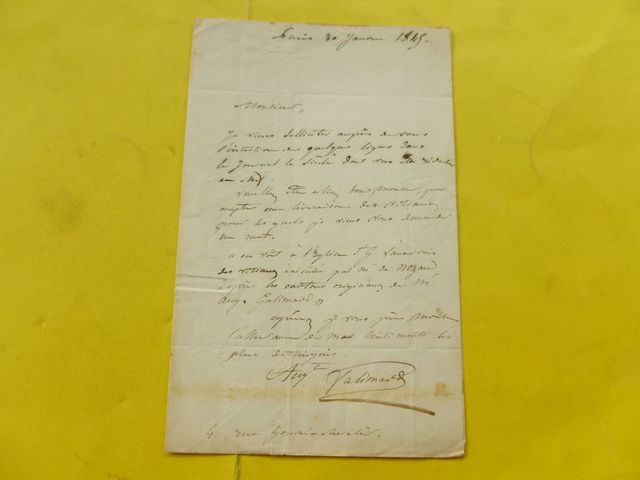 Paris 30 Janvier 1849.
Monsieur,
Je viens solliciter auprès de vous
l'insertion de quelques lignes dans
le Journal le Siècle dont vous êtes
en
veuillez être assez bon Monsieur, pour
accepter une livraison des vitraux
pour lesquels je viens vous demander
un mot.
on voit à l'Eglise St
des vitraux exécutés par Mr de Nozan
d'après les cartons originaux de Mr
Aug. Galimard
agréez je vous prie, Monsieur
l'assurance de mes sentiments les
plus distingués.
Augte Galimard
rue